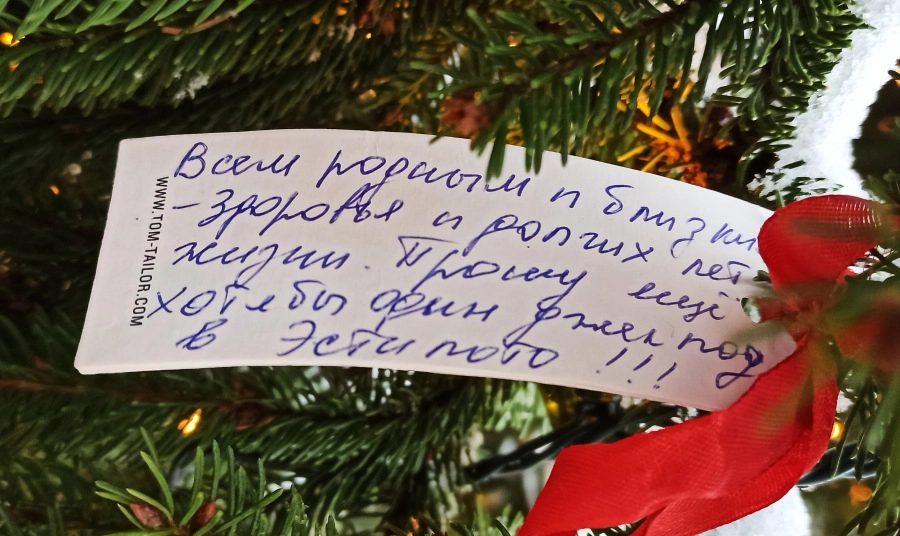 Всем родным и близким
- здоровья и долгих лет
жизни. Прошу ещё
хотя бы один джекпод
в Эстилото !!!
WWW.TOM-TAILOR.COM